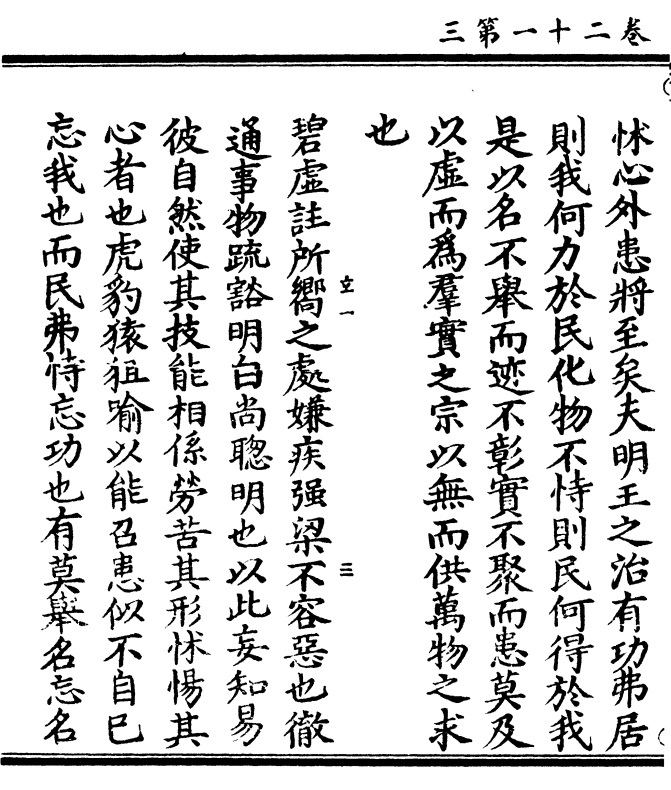 卷二十一第三
怵心外患將至矣夫明王之治有功弗居
則我何力於民化物不恃則民何得於我
是以名不舉而迹不彰實不聚而患莫及
以虛而為羣實之宗以無而供萬物之求
也
碧虛註所嚮之處嫌疾强梁不容惡也徹
通事物疏豁明白尚聦明也以此妄知易
彼自然使其技能相係勞苦其形怵惕其
心者也虎豹猿狙喻以能召患似不自已
忘我也而民弗恃忘功也有莫舉名忘名
立一
三